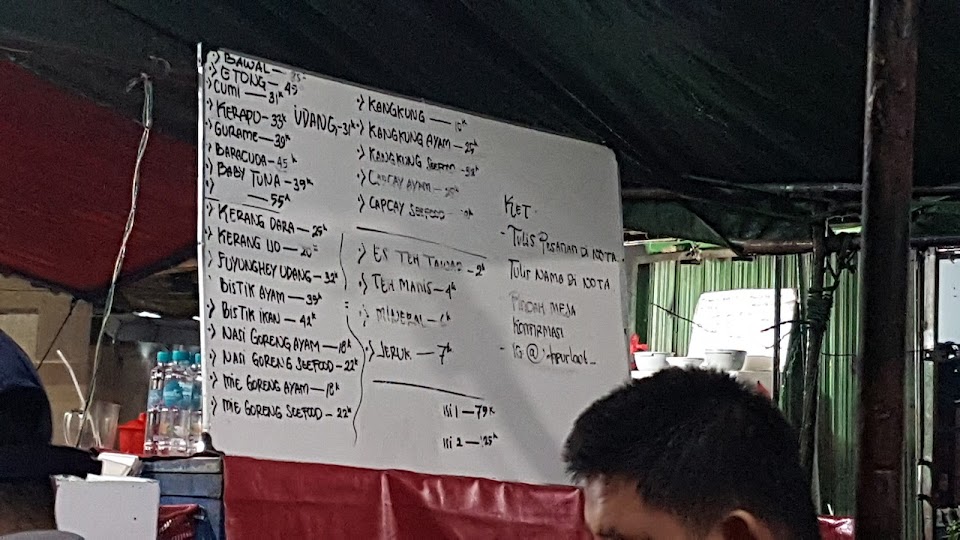 ·> BAWAL — 35ᴷ
·> ETONG — 45
·> CUMI — 31ᴷ
·> KERAPU — 33ᴷ UDANG - 31ᴷ
·> GURAME — 39ᴷ
·> BARACUDA — 45ᴷ
·> BABY TUNA — 39ᴷ
·> — 55ᴷ
·> KERANG DARA — 25ᴷ
·> KERANG IJO — 20ᴷ
·> FUYUNGHEY UDANG — 32ᴷ
BISTIK AYAM — 39ᴷ
·> BISTIK IKAN — 42ᴷ
·> NASI GORENG AYAM — 18ᴷ
·> NASI GORENG SEEFOOD — 22ᴷ
·> MIE GORENG AYAM — 18ᴷ
·> MIE GORENG SEEFOOD - 22ᴷ
·> KANGKUNG — 10ᴷ
·> KANGKUNG AYAM — 25ᴷ
·> KANGKUNG SEEFOOD
·> CAPCAY AYAM
·> CAPCAY SEEFOOD
·> ES TEH TAWAR — 2ᴷ
·> TEH MANIS — 4ᴷ
·> MINERAL
·> JERUK — 7ᴷ
ISI 1 — 79ᴷ
ISI 2 —
KET
- TULIS PESANAN DI NOTA
TULIS NAMA DI NOTA
PINDAH MEJA
KONFIRMASI
- IG @